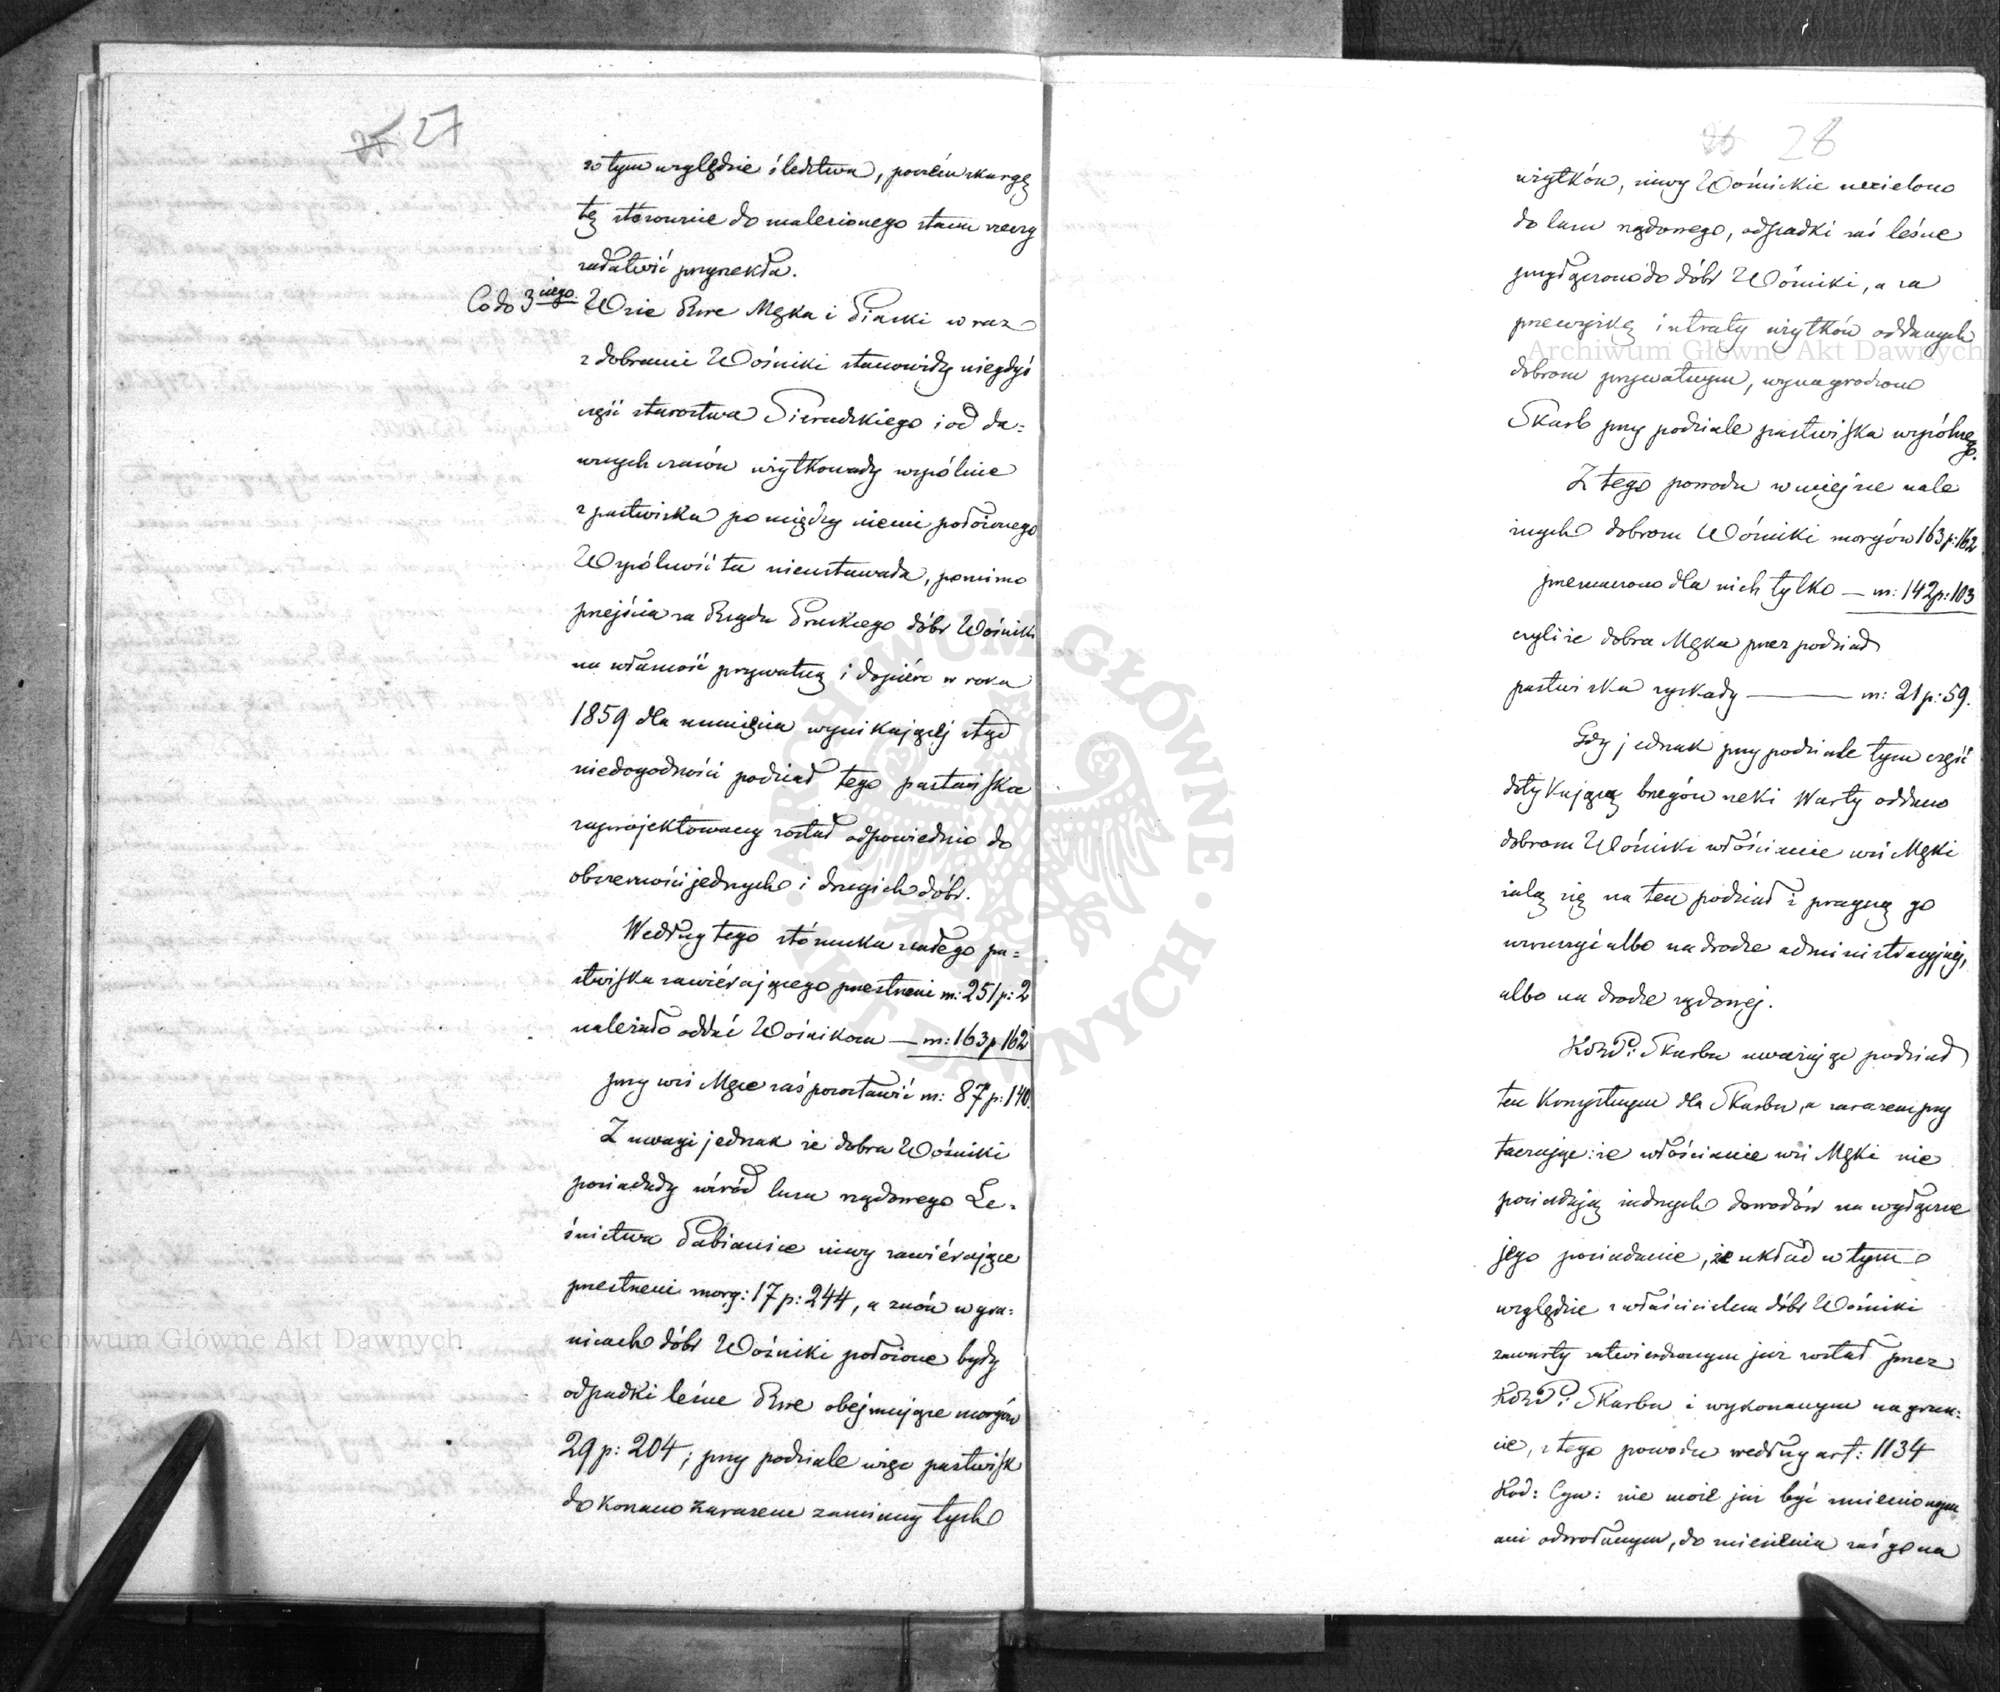 27
w tym względzie śledztwa, poczém skargę
tę stosownie do znalezionego stanu rzeczy
załatwić przyrzekła.
Co do 3niego. Wsie Rzre Męka i Piaski wraz
z dobrami Wośniki stanowiły niegdyś
część starostwa Sieradzkiego i od da=
wnych czasów użytkowały wspólnie
z pastwiska pomiędzy niemi położonego
Wspólność ta nieustawała, pomimo
przejścia za Rządu Pruskiego dóbr Wośniki
na własność prywatną i dopiéro w roku
1859 dla usunięcia wynikającéj ztąd
niedogodności podział tego pastwiska
zaprojektowany został odpowiednio do
obszerności jednych i drugich dóbr.
Według tego stósunku z całego pa=
stwiska zawiérającego przestrzeni m: 251 p: 2
należało oddać Wośnikom — m: 163 p 162
przy wsi Męce zaś pozostawić m: 87 p: 140.
Z uwagi jednak że dobra Wośniki
posiadały wśród lasu rządowego Le=
śnictwa Pabianice niwy zawiérające
przestrzeni morg: 17 p: 244, a znów w gra=
nicach dóbr Wośniki położone były
odpadki leśne Rzre obejmujące morgów
29 p: 204; przy podziale więc pastwisk
dokonano zarazem zamiany tych
28
użytków, niwy Wośnickie wcielono
do lasu rządowego, odpadki zaś leśne
przyłączono do dóbr Wośniki, a za
przewyżkę intraty użytków oddanych
dobrom prywatnym, wynagrodzono
Skarb przy podziale pastwiska wspólnego.
Z tego powodu w miejsce nale
żnych dobrom Wośniki morgów 163 p: 162
przeznaczono dla nich tylko — m: 142 p: 103
czyli że dobra Męka przez podział
pastwiska zyskały — m: 21 p: 59.
Gdy jednak przy podziale tym część
dotykającą brzegów rzeki Warty oddano
dobrom Wośniki włościanie wsi Męki
żalą się na ten podział i pragną go
wzruszyć albo na drodze administracyjnéj,
albo na drodze sądowéj.
KRz P: Skarbu uważając podział
ten korzystnym dla Skarbu, a zarazem przy
taczając: że włościanie wsi Męki nie
posiadają żadnych dowodów na wyłączne
jego posiadanie, że układ w tym
względzie z właścicielem dóbr Wośniki
zawarty zatwierdzonym już został przez
KRz P: Skarbu i wykonanym na grun=
cie, z tego powodu według art: 1134
Kod: Cyw: nie może już być zmienionym
ani odwołanym, do zmienienia zaś go na
Archiwum Główne Akt Dawnych
Archiwum Główne Akt Dawnych
ARCHIWUM GŁÓWNE · AKT DAWNYCH ·